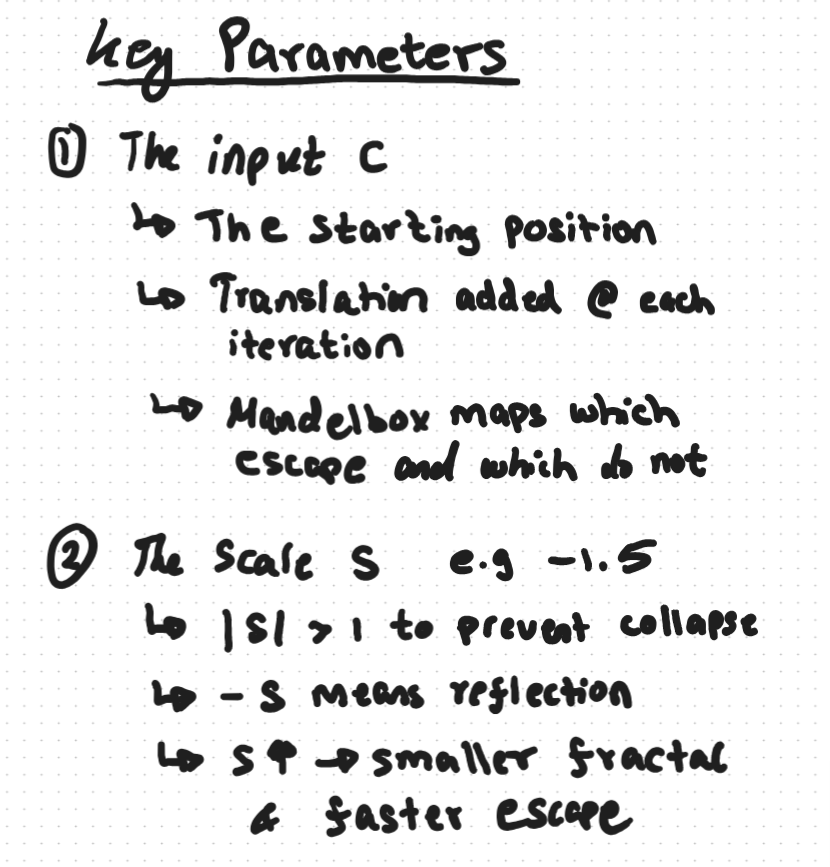 Key Parameters
① The input C
↳ The starting position
↳ Translation added @ each
iteration
↳ Mandelbox maps which
escape and which do not
② The Scale S e.g -1.5
↳ |S| > 1 to prevent collapse
↳ - S means reflection
↳ S ↑ → smaller fractal
& faster escape